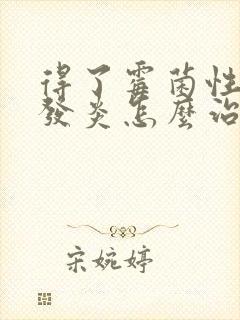 得了霉菌性
發炎怎麼治
宋婉婷